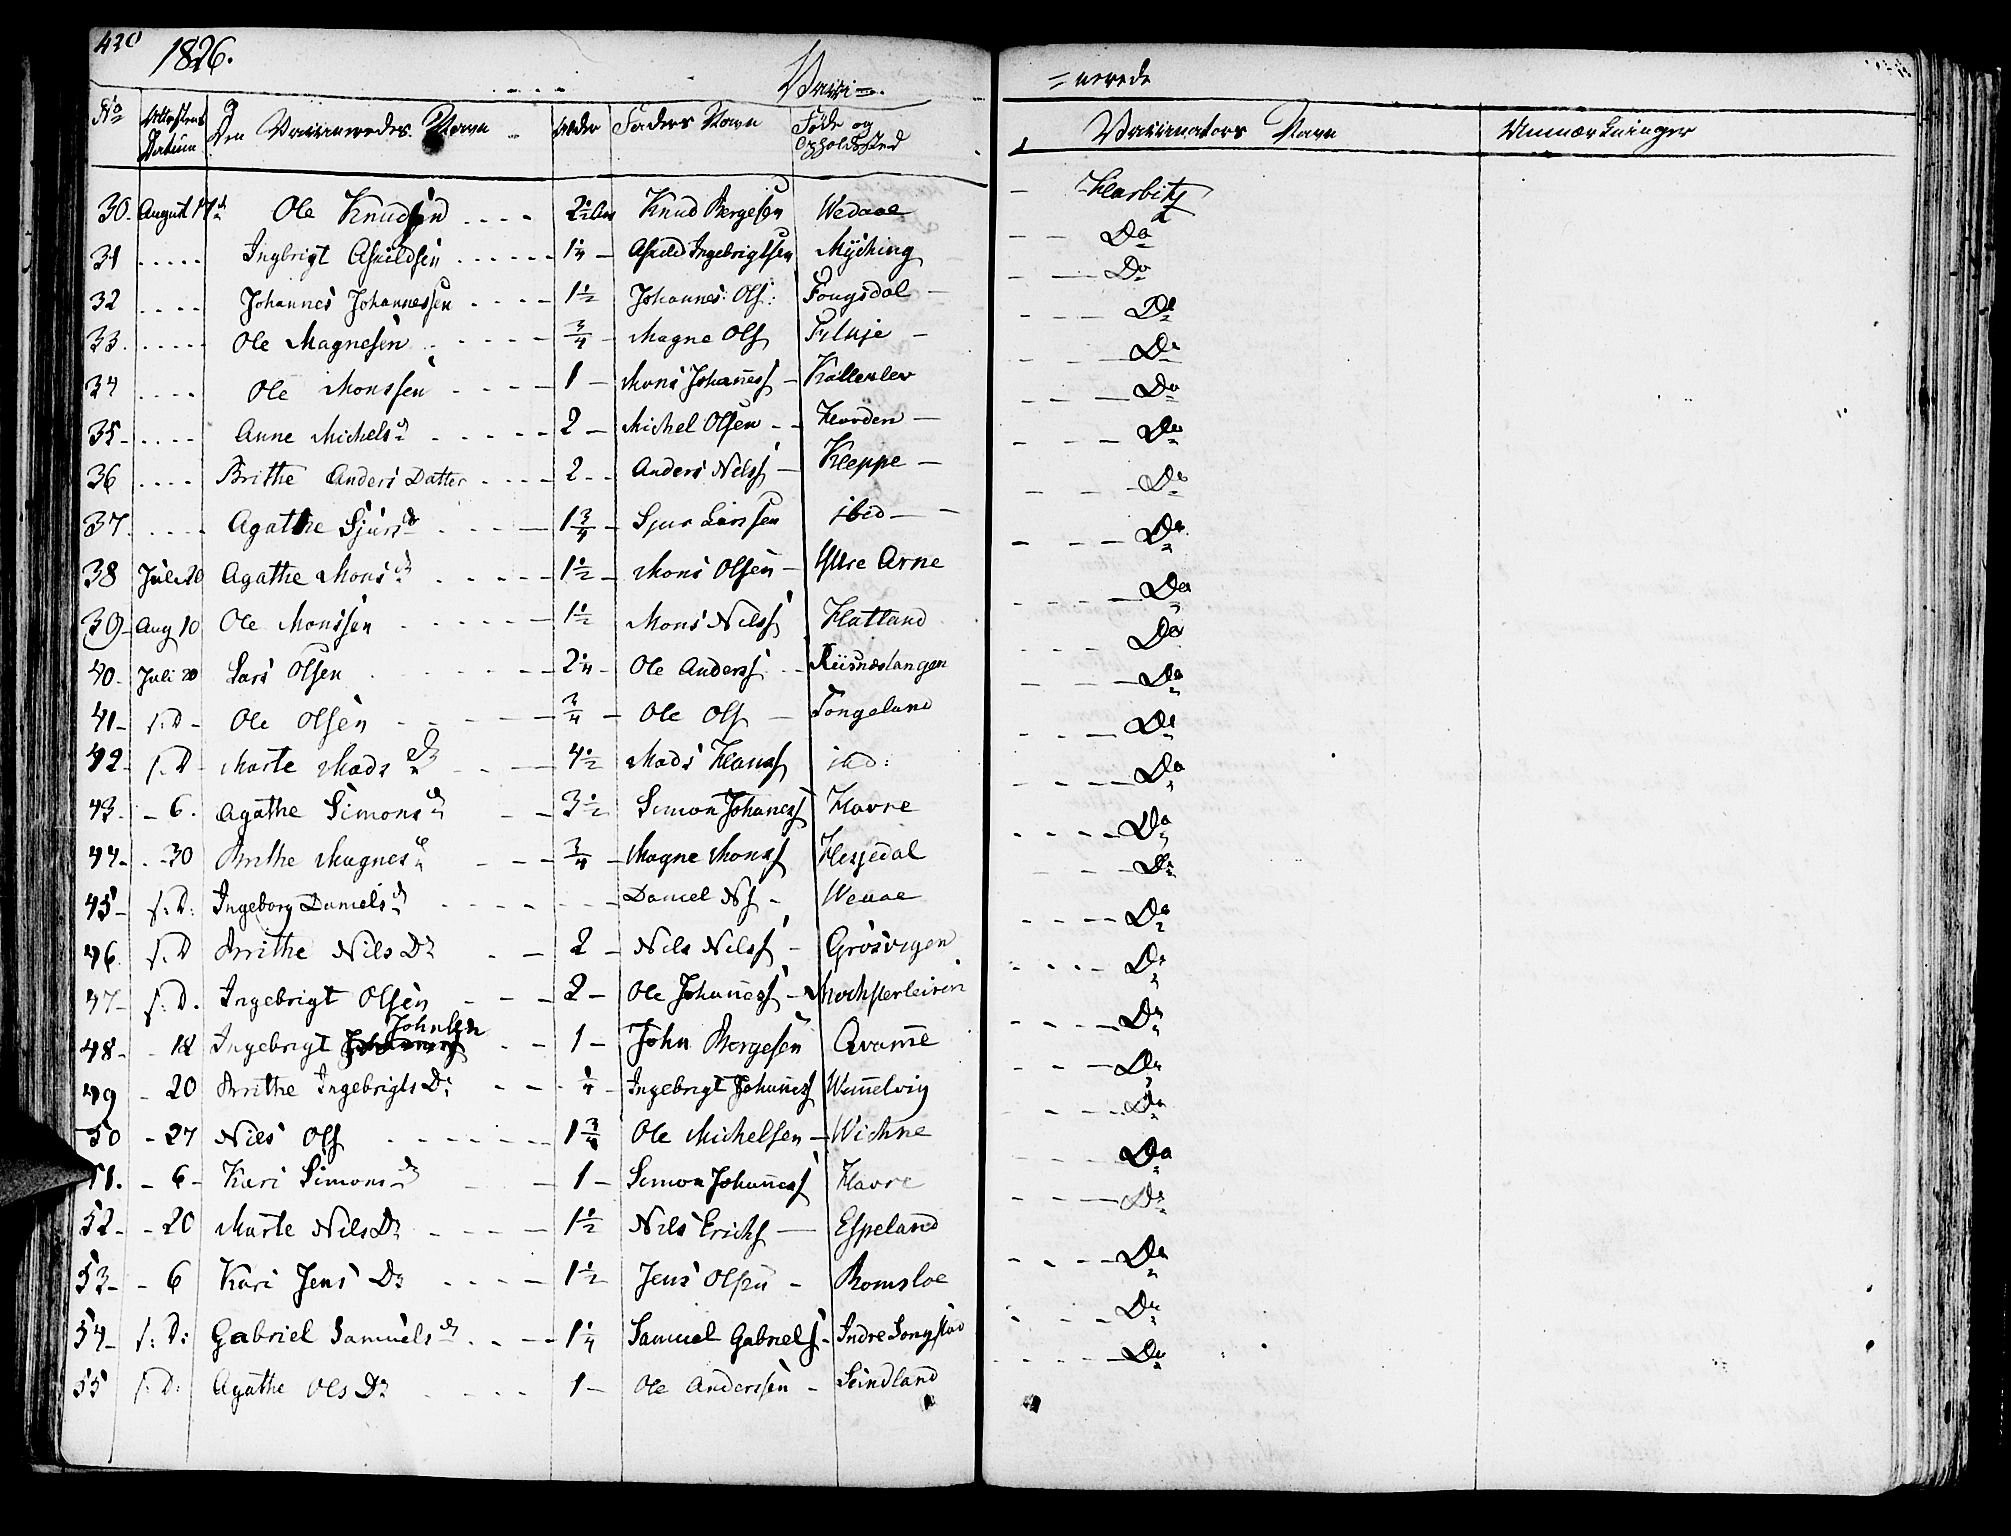 420
1826.
Vacci= =nerede
No Attestens Datum Den Vaccineredes Navn Alder Faders Navn Føde og Opholdsted Vaccinators Navn Anmærkninger
30. August 17d Ole Knudsen 2½ Aar Knud Børgesen Wedaae Harbitz
31 Ingbrigt Asuldsen 1¼ Asuld Ingebrigtsen Mÿching Do
32 Johannes Johannessen 1½ Johannes Ols: Fougsdal Do
33. Ole Magnesen ¾ Magne Ols Do
34 Ole Monssen 1 Mons Johaness Kallerlev Do
35 Anne Michelsd 2 Michel Olsen Hvorden Do
36 Brithe Anders Datter 2 Anders Nilss Kleppe Do
37. Agathe Sjursdr 1¾ Sjur Larssen ibid Do
38 Juli 20 Agathe Monsd 1½ Mons Olsen Ytre Arne Do
39 Aug 10 Ole Monssen 1½ Mons Nilss Hatland Do
40 Juli 20 Lars Olsen 2¼ Ole Anderss Riisnæslangen Do
41 s:D Ole Olsen ¾ Ole Ols Tongeland Do
42 s:D Marte Madsdr 4½ Mads Hanss ibid: Do
43. 6. Agathe Simonsd 3½ Simon Johaness Havre Do
44 30 Brithe Magnesd ¾ Magne Monss Hesjedal Do
45 s:D: Ingeborg Danielsd Daniel Ns Do
46 s:D Brithe Nils Dr 2 Nils Nilss Grøsvigen Do
47 s:D. Ingebrigt Olsen 2 Ole Johaness Do
48 18 Ingebrigt Johnsen 1 John Børgesen Qvamme Do
49 20 Brithe Ingebrigts Dr ¼ Ingebrigt Johaness Wemmelvig Do
50 27 Niels Ols 1¾ Ole Michelsen Wichne Do
51. 6 Kari Simonsdr 1 Simon Johaness Havre Do
52 20 Marte Nils Dr 1½ Nils Erichs Espeland Do
53 6 Kari Jens Dr 1½ Jens Olsen Romsloe Do
54 s:D: Gabriel Samuelsd 1¼ Samuel Gabriels Indre Songstad Do
55 s:D: Agathe Ols Dr 1 Ole Anderssen Seindland Do